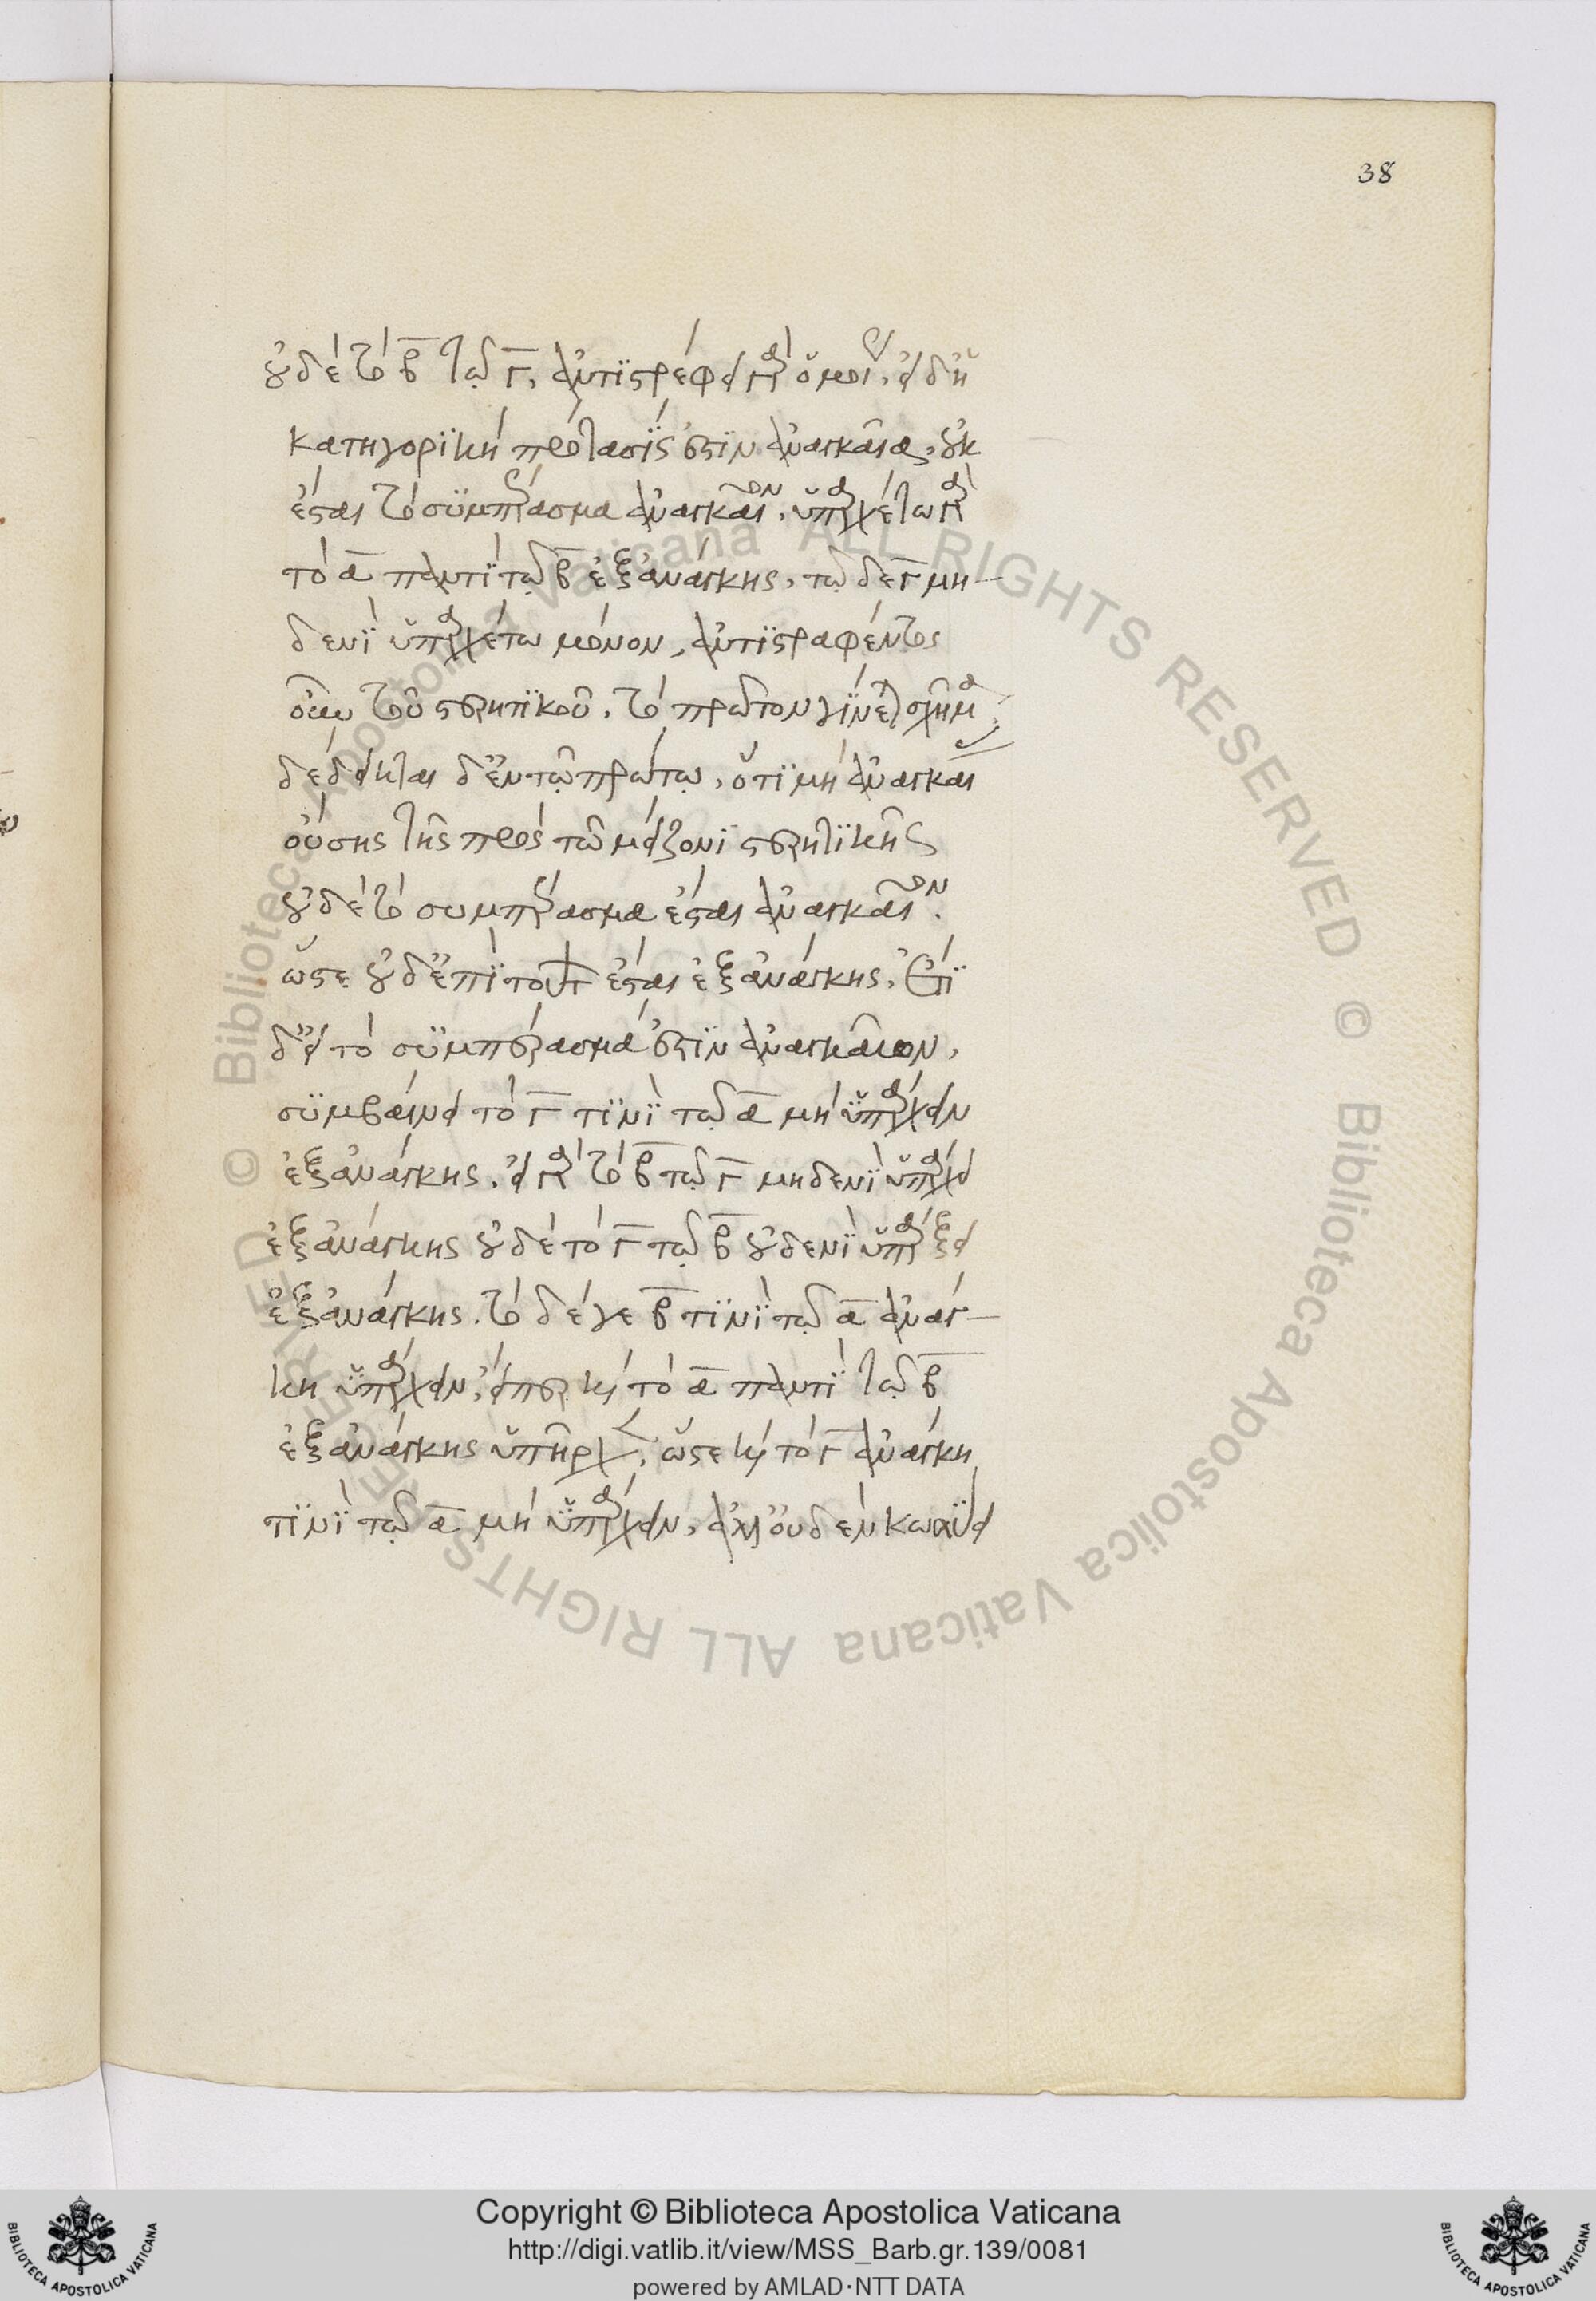 38
οὐδὲ τὸ β̅ τῷ γ̅, ἀντιστρέφει γὰρ ὁμοίως. εἰ δὲ ἡ
κατηγορικὴ πρότασίς ἐστιν ἀναγκαία, οὐκ
ἔσται τὸ συμπέρασμα ἀναγκαῖον. ὑπαρχέτω γὰρ
τὸ α̅ παντὶ τῷ β̅ ἐξ ἀνάγκης, τῷ δὲ γ̅ μη-
δενὶ ὑπαρχέτω μόνον, ἀντιστραφέντος
οὖν τοῦ στερητικοῦ, τὸ πρῶτον γίνεται σχῆμα,
δέδεικται δ' ἐν τῷ πρώτῳ, ὅτι μὴ ἀναγκαίας
οὔσης τῆς πρὸς τῶ μείζονι στερητικῆς
οὐδὲ τὸ συμπέρασμα ἔσται ἀναγκαῖον.
ὥστε οὐδ' ἐπὶ τούτων ἔσται ἐξ ἀνάγκης. ἔτι
δ' εἰ τὸ συμπέρασμά ἐστιν ἀναγκαῖον,
συμβαίνει τὸ γ̅ τινὶ τῷ α̅ μὴ ὑπάρχειν
ἐξ ἀνάγκης. εἰ γὰρ τὸ β̅ τῷ γ̅ μηδενὶ ὑπάρχει
ἐξ ἀνάγκης οὐδὲ τὸ γ̅ τῷ β̅ οὐδενὶ ὑπάρξει
ἐξ ἀνάγκης. τὸ δέ γε β̅ τινὶ τῷ α̅ ἀνάγ-
κη ὑπάρχειν, εἴπερ καὶ τὸ α̅ παντὶ τῷ β̅
ἐξ ἀνάγκης ὑπῆρχεν, ὥστε καὶ τὸ γ̅ ἀνάγκη
τινὶ τῷ α̅ μὴ ὑπάρχειν, ἀλλ' οὐδὲν κωλύει
Copyright © Biblioteca Apostolica Vaticana
http://digi.vatlib.it/view/MSS_Barb.gr.139/0081
powered by AMLAD·NTT DATA